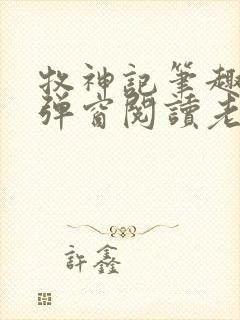 牧神記筆趣
彈窗閱讀老
許鑫